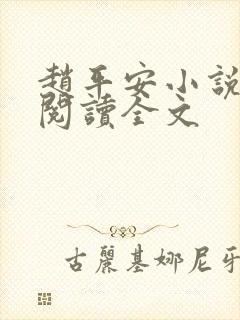 趙平安小說
閱讀全文
古麗基娜尼牙